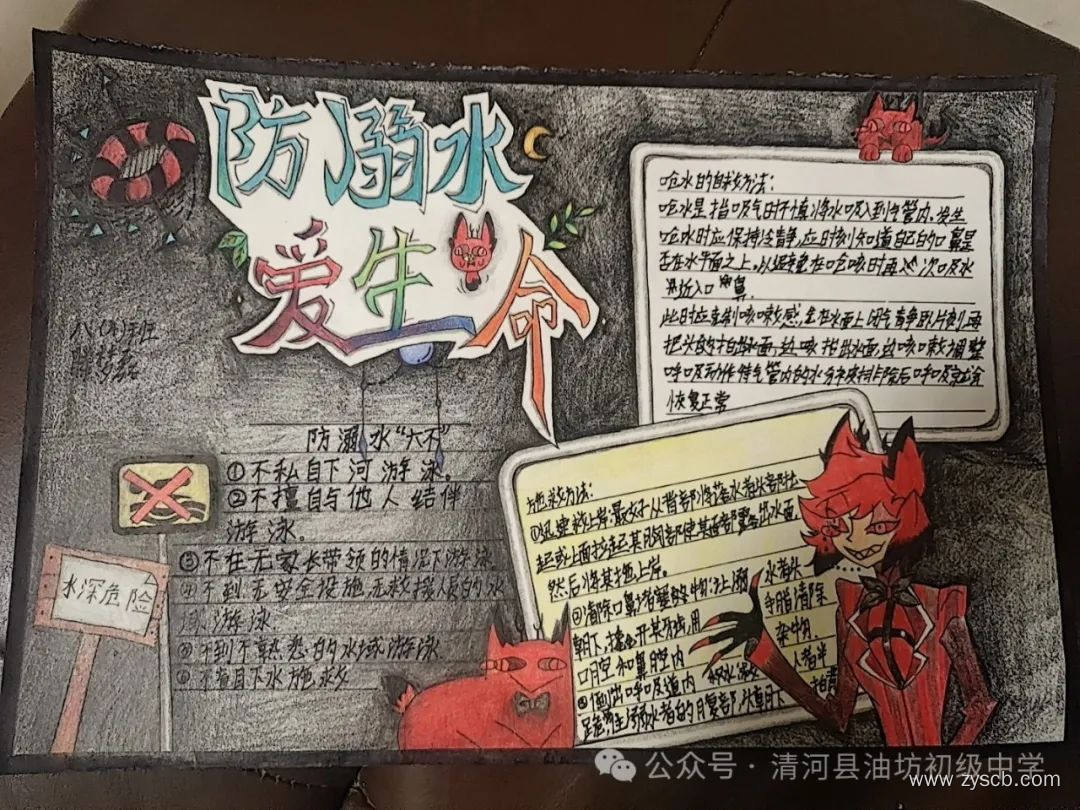 防溺水
爱生命
八(本)班
防溺水"六不"
①不私自下河游泳。
②不擅自与他人结伴
游泳。
③不在无家长带领的情况下游泳
④不到无安全设施,无救援人员的水
域游泳
⑤不到不熟悉的水域游泳
⑥不盲目下水施救
水深危险
呛水的自救方法:
呛水是指吸气时不慎将水吸入到气管内。发生
呛水时应保持冷静,应时刻知道自己的口鼻是
否在水平面之上,以避免在呛咳时再次吸水
进入口鼻
此时应克制咳嗽感,在水面上闭气静卧片刻再
把头抬出水面,边咳嗽边调整
呼吸动作待气管内的水分排除后呼吸就会
恢复正常
施救方法:
①迅速救上岸:最好从背部将落水者头部托
起或上面拉起其胸部使其面部露出水面
然后将其拖上岸。
②清除口鼻里的堵塞物:让溺水者头
朝下,撬开其牙齿用手指清除
口腔和鼻腔内杂物.
③倒出呼吸道内积水:救人者半
跪 溺水者的腹部 头朝下 拍背
公众号·清河县油坊初级中学
www.zyscb.com